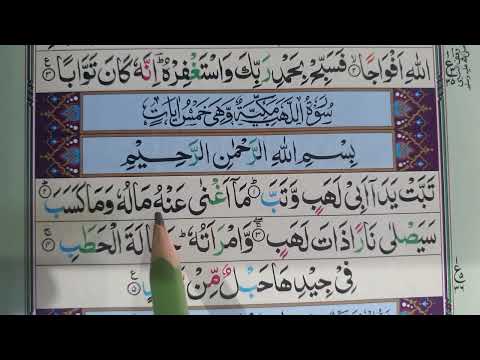 اللهِ اَفْوَاجًا ۙ﴿۲﴾ فَسَبِّحْ بِحَمْدِ رَبِّكَ وَاسْتَغْفِرْهُ ؕ اِنَّهٗ كَانَ تَوَّابًا ﴿۳﴾
سُوْرَةُ اللَّهَبِ مَكِّيَّةٌ وَّهِىَ خَمْسُ اٰيَاتٍ
بِسْمِ اللهِ الرَّحْمٰنِ الرَّحِيْمِ
تَبَّتْ يَدَاۤ اَبِىْ لَهَبٍ وَّتَبَّ ؕ﴿۱﴾ مَاۤ اَغْنٰى عَنْهُ مَالُهٗ وَمَا كَسَبَ ؕ﴿۲﴾
سَيَصْلٰى نَارًا ذَاتَ لَهَبٍ ۚۖ﴿۳﴾ وَّامْرَاَتُهٗ ؕ الْحَطَبِ ۚ﴿۴﴾
فِىْ جِيْدِهَا حَبْلٌ مِّنْ ﴿۵﴾